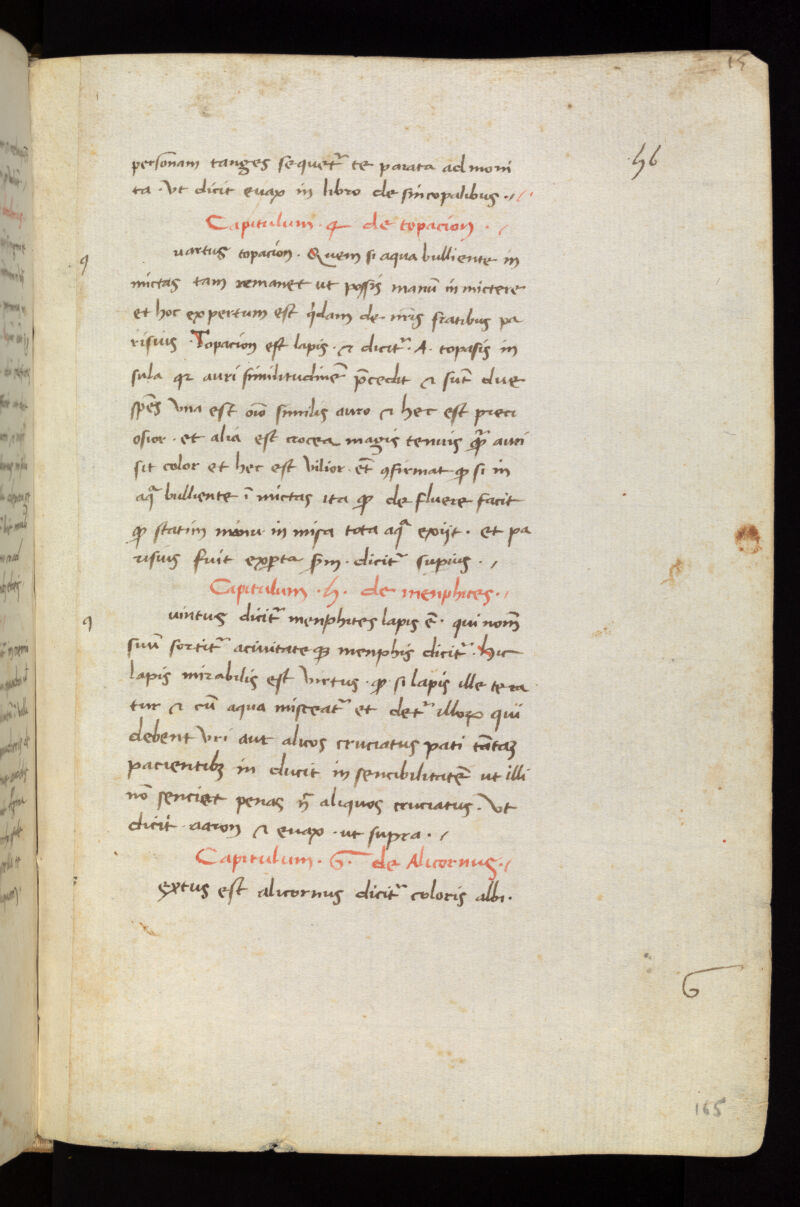 15
56
personam tanges sequet᷑ te parata ad moni
ta. Vt dicit euax in libro de sincopalibus.
Capitulum. 4 de topacion.
q uartus topacion. Quem si aqua bulliente in
mictas tam remanet ut possis manū in mictere
et hoc expertum est q̇dam de nr̄is fratibus pa
risius. Topacion est lapis. & dicit᷑. A. topasis in
sula qr auri similitudinē p̄cedit & sūt due
spēs Vna est oīo similis auro & hec est preci
osior. et alia est crocea magis tenuis ꝙ̄ auri
sit color et hec est Vilior. Et̄ ꝯfirmat ꝙ si in
aq̄ bulliente ī mictas ita ꝙ de fluere facit
ꝙ statim manu in misa tota aq̄ exijt. et pa
risius fuit exꝑta sm̄. dicit᷑ supius.
Capitulum. 5. de menphites.
q uintus dicit᷑ menphites lapis ē. qui nom̄
suū sortit᷑ aciuitate que menphis dicit᷑. hic
lapis mirabilis est Virtus. ꝙ si lapis ille tera
tur & cū aqua misceat᷑ et det᷑ illoꝝ qui
debent Vri aut alicos cruciatus pati tātaꝫ
pacientibꝫ in ducit in sencibilitatē ut illi
nō senciet penas n̄ aliquos cruciatus. Vt
dicit. aaron & euax. ut supra.
Capitulum. 6. de Alicornus.
extus est alicornus dicit᷑ coloris albi.
6
165